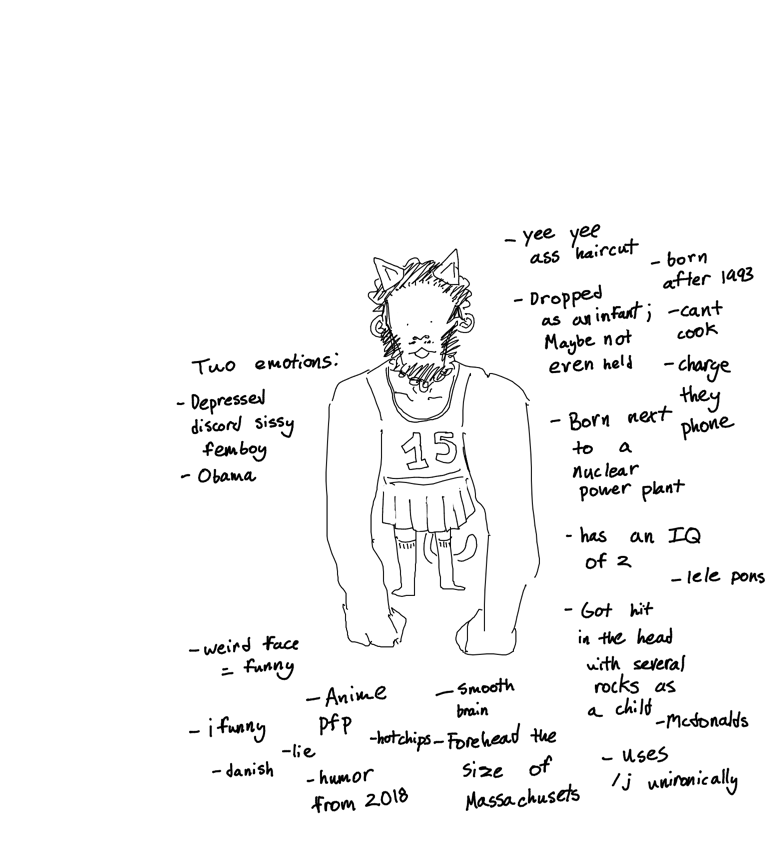 - yee yee
ass haircut
- born
after 1993
- Dropped
as an infant;
Maybe not
even held
- cant
cook
- charge
they
phone
Two emotions:
- Depressed
discord sissy
femboy
- Obama
15
- Born next
to a
nuclear
power plant
- has an IQ
of 2
- lele pons
- Got hit
in the head
with several
rocks as
a child
- Mcdonalds
- weird face
= funny
- Anime
pfp
- smooth
brain
- ifunny
- lie
- hotchips
- Forehead the
size of
Massachusets
- danish
- humor
from 2018
- uses
/j unironically